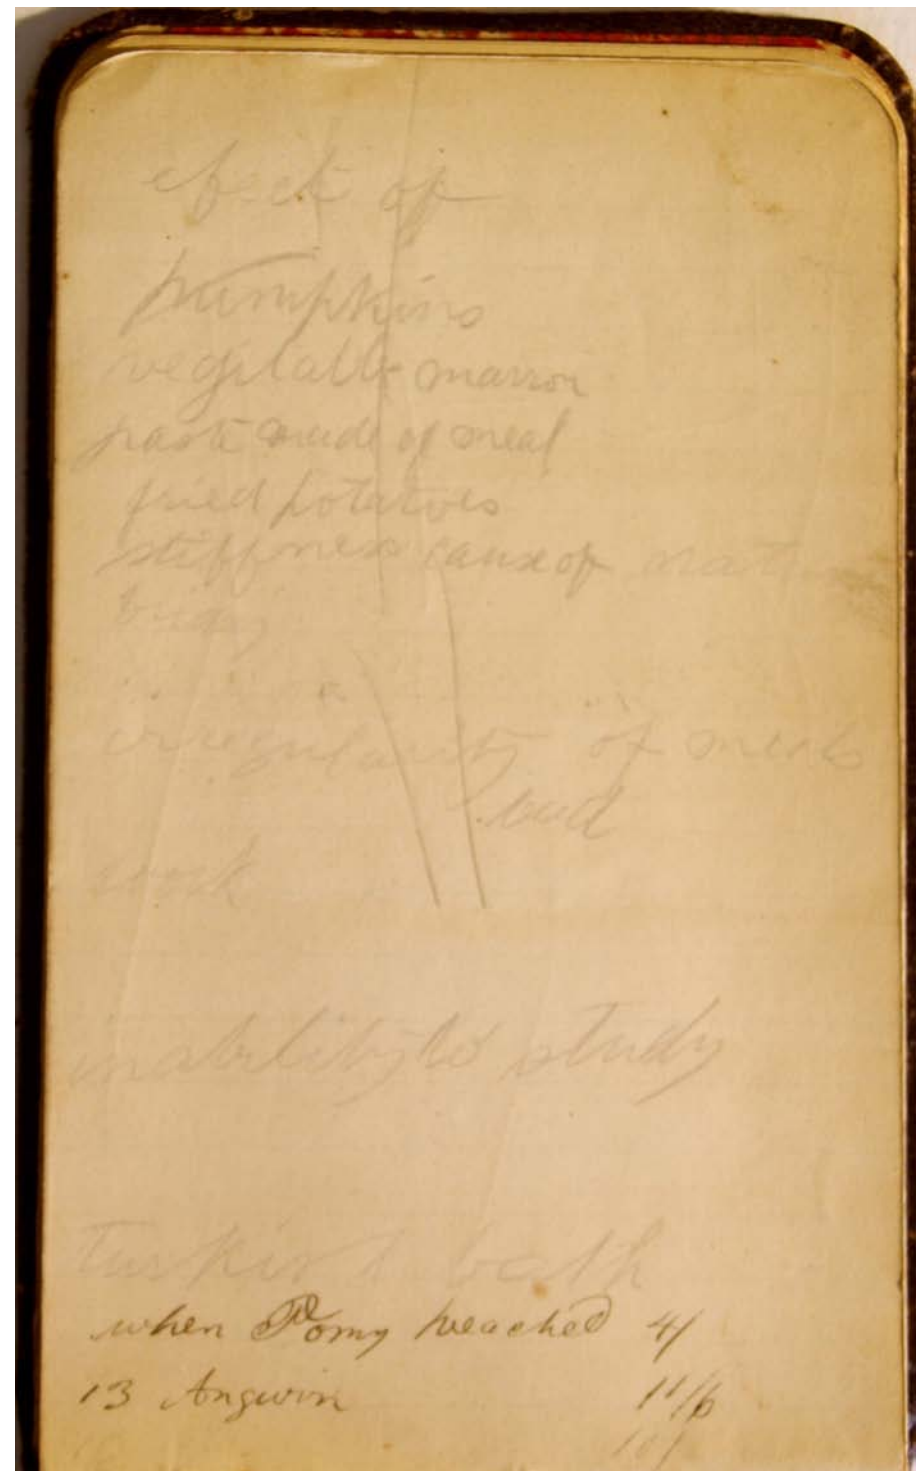 efect of
pumpkins
vegitable marrow
paste made of meal
fried potatoes
stiffness cause of
irregularity of meals
and
work
inability to study
Turkish bath
when Pomy preached 4/
13 Angwin 11/6
10/